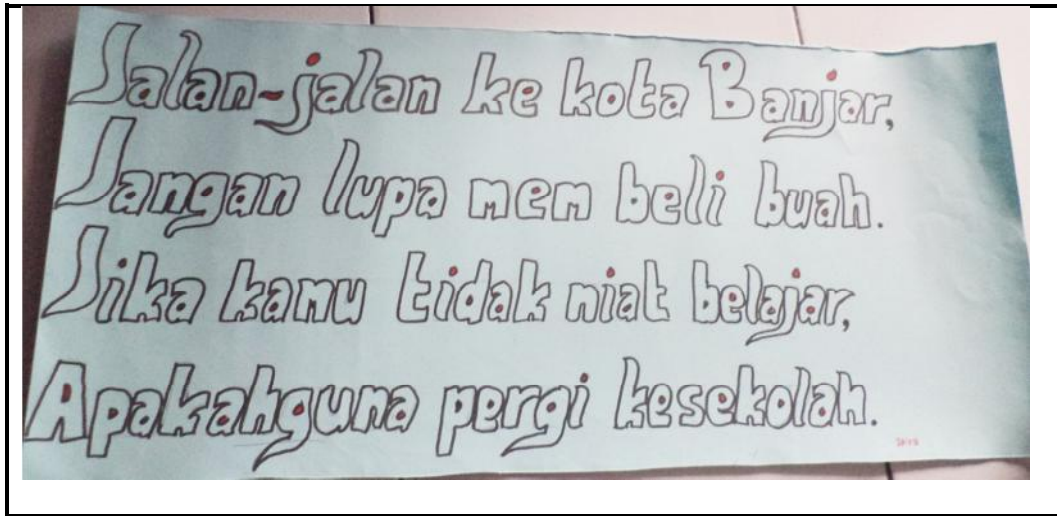 Jalan-jalan ke kota Banjar,
Jangan lupa mem beli buah.
Jika kamu tidak niat belajar,
Apakahguna pergi kesekolah.